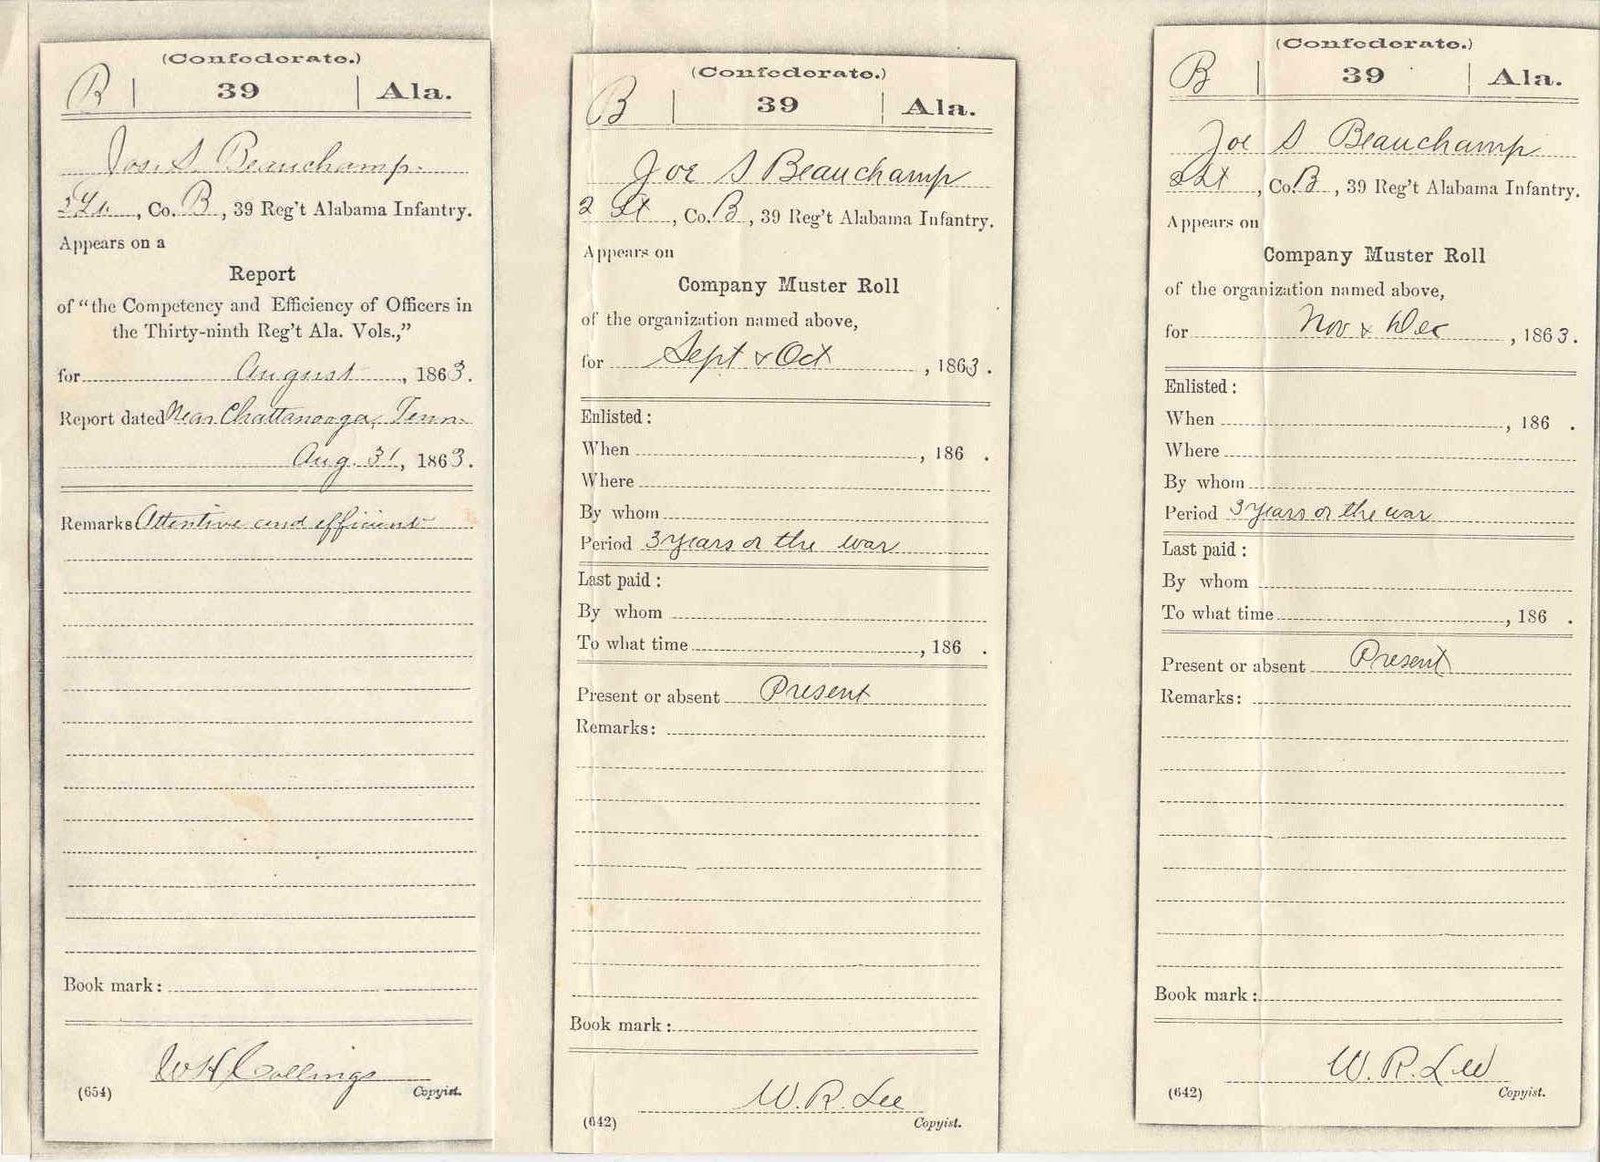 (Confederate.)
B | 39 | Ala.
Jos. S. Beauchamp.
2 Lt., Co. B, 39 Reg't Alabama Infantry.
Appears on a
Report
of "the Competency and Efficiency of Officers in
the Thirty-ninth Reg't Ala. Vols.,"
for August, 1863.
Report dated Near Chattanooga, Tenn.
Aug. 31, 1863.
Remarks Attentive and efficient
Book mark:
W H Collings
(654) Copyist.
(Confederate.)
B | 39 | Ala.
Joe S Beauchamp
2 Lt, Co. B, 39 Reg't Alabama Infantry.
Appears on
Company Muster Roll
of the organization named above,
for Sept & Oct, 1863.
Enlisted:
When , 186 .
Where
By whom
Period 3 years or the war
Last paid:
By whom
To what time , 186 .
Present or absent Present
Remarks:
Book mark:
W. R. Lee
(642) Copyist.
(Confederate.)
B | 39 | Ala.
Joe S Beauchamp
2 Lt, Co. B, 39 Reg't Alabama Infantry.
Appears on
Company Muster Roll
of the organization named above,
for Nov & Dec, 1863.
Enlisted:
When , 186 .
Where
By whom
Period 3 years or the war
Last paid:
By whom
To what time , 186 .
Present or absent Present
Remarks:
Book mark:
W. R. Lee
(642) Copyist.